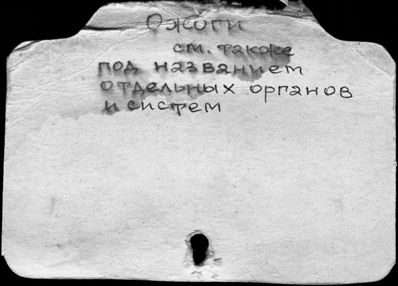 Ожоги
см. также
под названием
отдельных органов
и систем